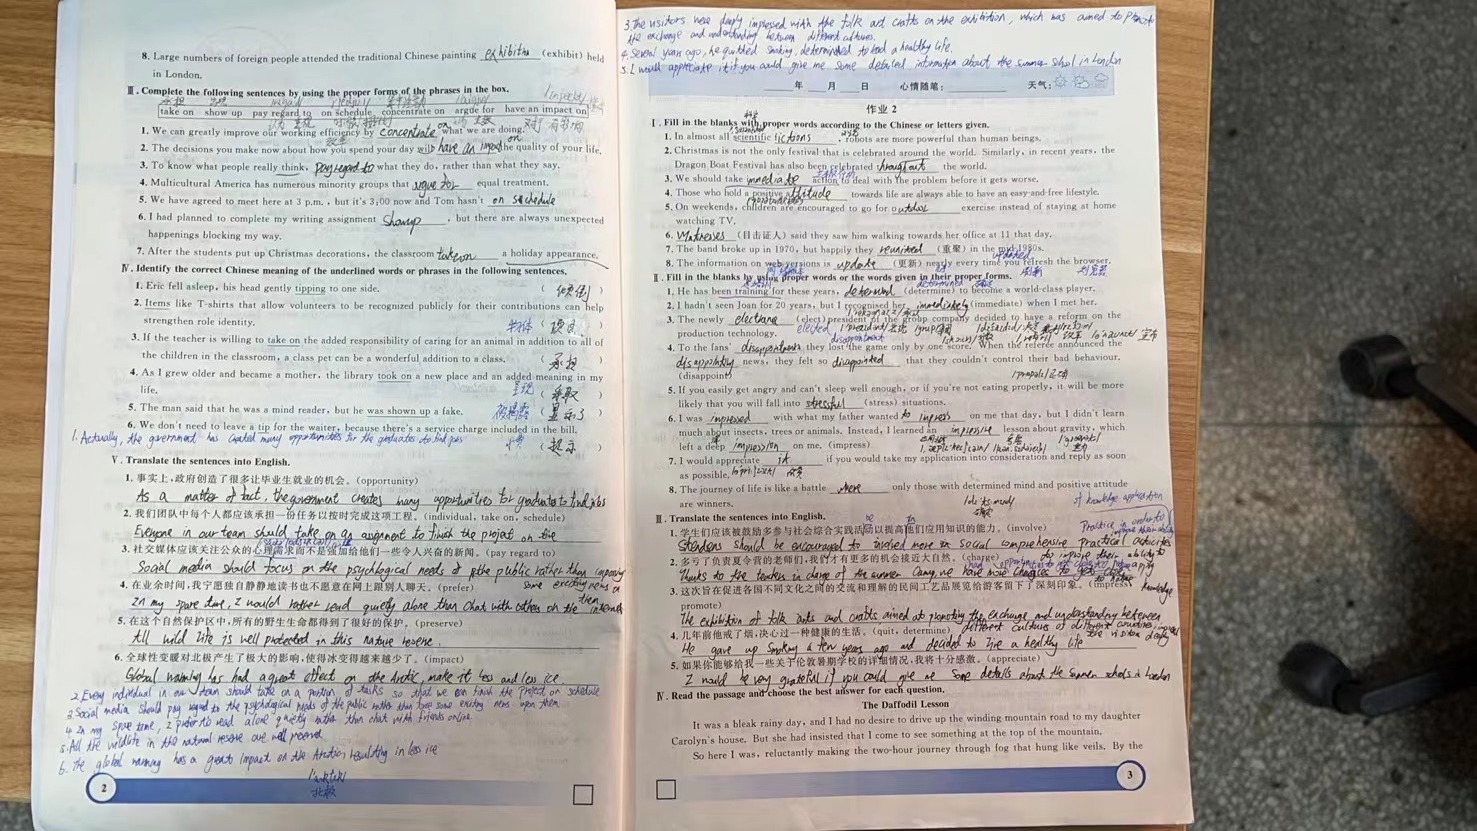 8. Large numbers of foreign people attended the traditional Chinese painting (exhibit) held
in London.
Ⅲ. Complete the following sentences by using the proper forms of the phrases in the box.
take on show up pay regard to on schedule concentrate on argue for have an impact on
1. We can greatly improve our working efficiency by concentrate on what we are doing.
2. The decisions you make now about how you spend your day will have an impact on the quality of your life.
3. To know what people really think, pay regard to what they do, rather than what they say.
4. Multicultural America has numerous minority groups that argue for equal treatment.
5. We have agreed to meet here at 3 p.m., but it's 3:00 now and Tom hasn't on schedule
6. I had planned to complete my writing assignment show up, but there are always unexpected
happenings blocking my way.
7. After the students put up Christmas decorations, the classroom take on a holiday appearance.
Ⅳ. Identify the correct Chinese meaning of the underlined words or phrases in the following sentences.
1. Eric fell asleep, his head gently tipping to one side. (倾倒)
2. Items like T-shirts that allow volunteers to be recognized publicly for their contributions can help
strengthen role identity.
3. If the teacher is willing to take on the added responsibility of caring for an animal in addition to all of
the children in the classroom, a class pet can be a wonderful addition to a class. (承担)
4. As I grew older and became a mother, the library took on a new place and an added meaning in my
life. 呈现
5. The man said that he was a mind reader, but he was shown up a fake.
6. We don't need to leave a tip for the waiter, because there's a service charge included in the bill.
1. Actually, the government has created many opportunities for the graduates to find jobs
小费
Ⅴ. Translate the sentences into English.
1. 事实上,政府创造了很多让毕业生就业的机会。(opportunity)
As a matter of fact, the government creates many opportunities for graduates to find jobs
2. 我们团队中每个人都应该承担一份任务以按时完成这项工程。(individual, take on, schedule)
Everyone in our team should take on an to finish the project on the
3. 社交媒体应该关注公众的心理需求而不是强加给他们一些令人兴奋的新闻。(pay regard to)
Social media should focus on the psychlogical needs of the public rather than imposing
some exciting news on them
4. 在业余时间,我宁愿独自静静地读书也不愿意在网上跟别人聊天。(prefer)
In my spare time, I would rather read quietly alone than chat with others on the internet
5. 在这个自然保护区中,所有的野生生命都得到了很好的保护。(preserve)
All wild life is well protected in this nature reserve.
6. 全球性变暖对北极产生了极大的影响,使得冰变得越来越少了。(impact)
Global warming has had a great effect on the Arctic, make it less and less ice.
2. Every individual in our team should take on a portion of tasks so that we can finish the project on schedule
3. Social media should pay regard to the psychological needs of the public rather than some exciting news upon them.
4. In my spare time, I prefer to read alone quietly rather than chat with friends online.
5. All the wildlife in the natural reserve are well preserved.
6. The global warming has a great impact on the Arctic, resulting in less ice
北极
2
3. The visitors were deeply impressed with the folk art crafts on the exhibition, which was aimed to promote
the exchange and understanding between different cultures.
4. Several years ago, he quitted smoking, determined to lead a healthy life.
5. I would appreciate it if you could give me some detailed information about the summer school in London
年 月 日 心情随笔: 天气:
作业 2
Ⅰ. Fill in the blanks with proper words according to the Chinese or letters given.
1. In almost all scientific fictions, robots are more powerful than human beings.
2. Christmas is not the only festival that is celebrated around the world. Similarly, in recent years, the
Dragon Boat Festival has also been celebrated througtout the world.
3. We should take immediate action to deal with the problem before it gets worse.
4. Those who hold a positive attitude towards life are always able to have an easy-and-free lifestyle.
5. On weekends, children are encouraged to go for outdoor exercise instead of staying at home
watching TV.
6. (目击证人) said they saw him walking towards her office at 11 that day.
7. The band broke up in 1970, but happily they reunited (重聚) in the mid-1980s.
8. The information on web versions is update (更新) nearly every time you refresh the browser.
updated
Ⅱ. Fill in the blanks by using proper words or the words given in their proper forms.
1. He has been training for these years, (determine) to become a world-class player.
determined
2. I hadn't seen Joan for 20 years, but I recognised her immediately (immediate) when I met her.
3. The newly (elect) president of the group company decided to have a reform on the
production technology. elected
4. To the fans' disappointment they lost the game only by one score. When the referee announced the
disappointing news, they felt so disappointed that they couldn't control their bad behaviour.
(disappoint)
5. If you easily get angry and can't sleep well enough, or if you're not eating properly, it will be more
likely that you will fall into stressful (stress) situations.
6. I was impressed with what my father wanted to impress on me that day, but I didn't learn
much about insects, trees or animals. Instead, I learned an impressive lesson about gravity, which
left a deep impression on me. (impress)
7. I would appreciate it if you would take my application into consideration and reply as soon
as possible.
8. The journey of life is like a battle where only those with determined mind and positive attitude
are winners.
of knowledge application
Ⅲ. Translate the sentences into English.
1. 学生们应该被鼓励多参与社会综合实践活动以提高他们应用知识的能力。(involve)
should be encouraged to involved more in social comprehensive practical activities
to improve their ability to apply knowledge
2. 多亏了负责夏令营的老师们,我们才有更多的机会接近大自然。(charge)
Thanks to the teachers in charge of the summer camp, we have more chances to get close to nature
3. 这次旨在促进各国不同文化之间的交流和理解的民间工艺品展览给游客留下了深刻印象。(impress,
promote)
The exhibition of folk arts and crafts aimed at promoting the exchange and understanding between
different cultures of different countries, the visitors deeply
4. 几年前他戒了烟,决心过一种健康的生活。(quit, determine)
He gave up smoking a few years ago and decided to live a healthy life
5. 如果你能够给我一些关于伦敦暑期学校的详细情况,我将十分感激。(appreciate)
I would be very grateful if you could give me some details about the summer schools in London
Ⅳ. Read the passage and choose the best answer for each question.
The Daffodil Lesson
It was a bleak rainy day, and I had no desire to drive up the winding mountain road to my daughter
Carolyn's house. But she had insisted that I come to see something at the top of the mountain.
So here I was, reluctantly making the two-hour journey through fog that hung like veils. By the
3